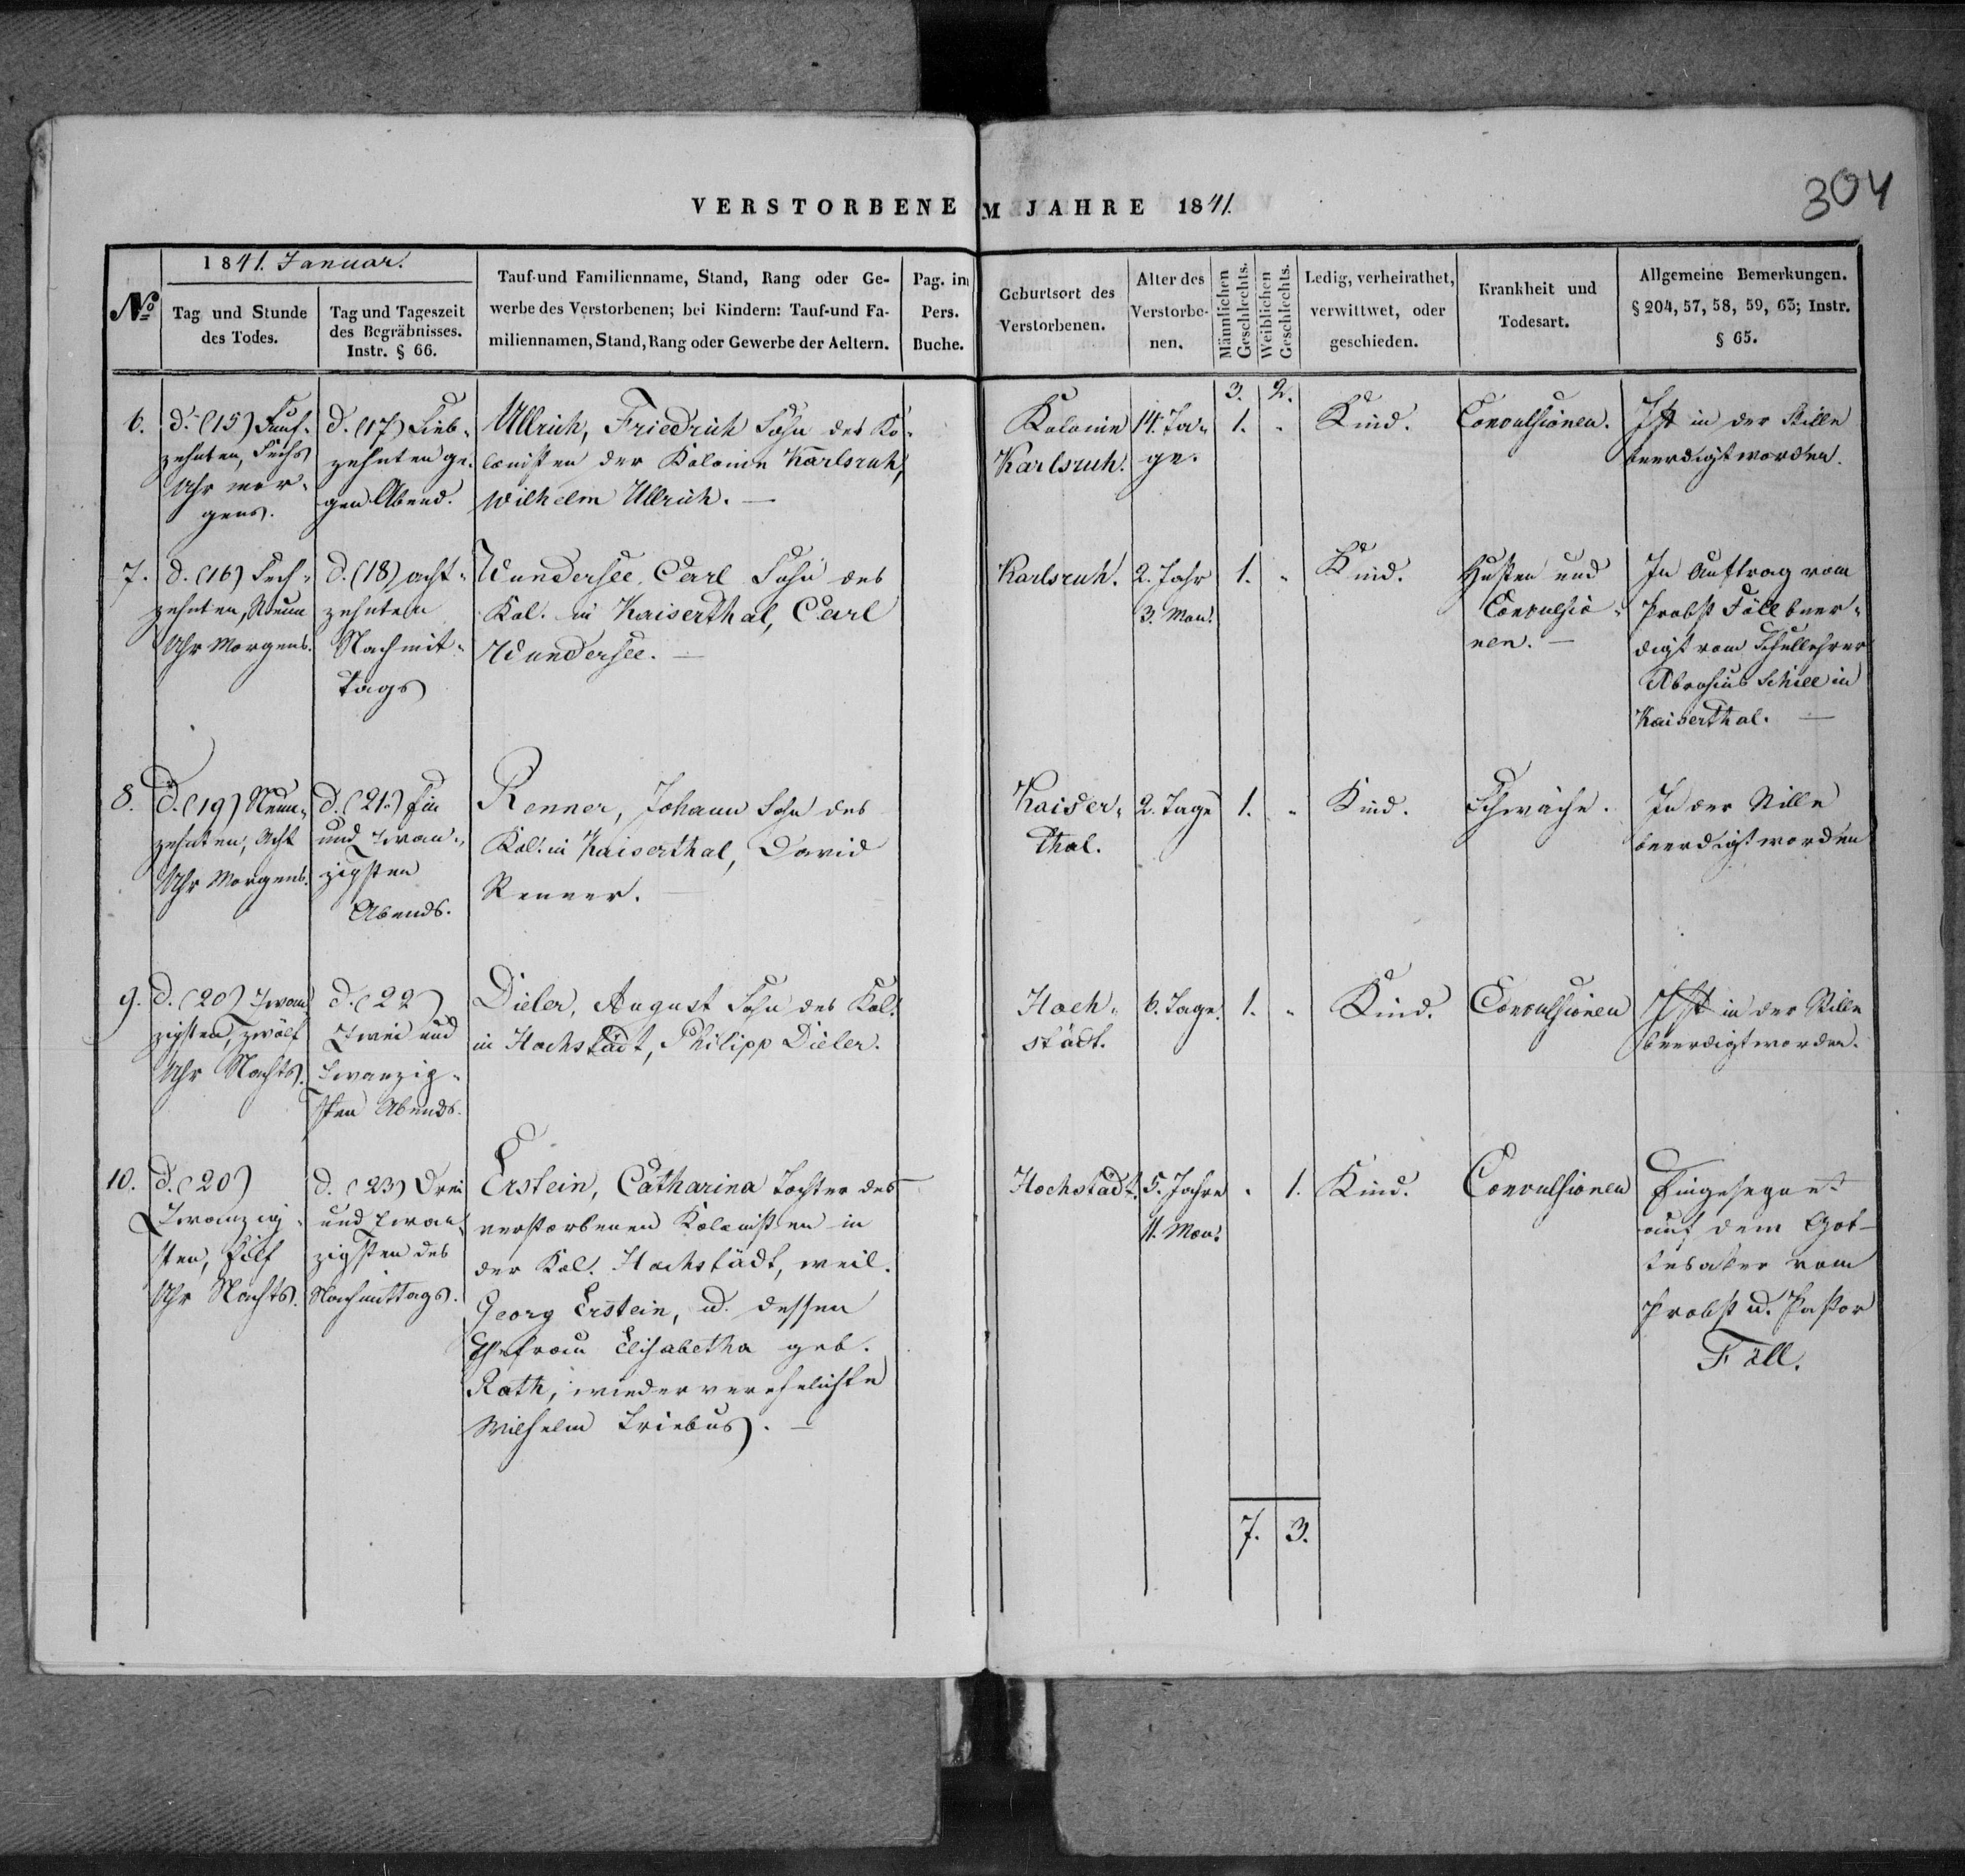 VERSTORBENE IM JAHRE 1841.
304
No
1841. Januar.
Tag und Stunde
des Todes.
Tag und Tageszeit
des Begräbnisses.
Instr. § 66.
Tauf-und Familienname, Stand, Rang oder Ge-
werbe des Verstorbenen; bei Kindern: Tauf-und Fa-
miliennamen, Stand, Rang oder Gewerbe der Aeltern.
Pag. im
Pers.
Buche.
Geburtsort des
Verstorbenen.
Alter des
Verstorbe-
nen.
Männlichen
Geschlechts.
Weiblichen
Geschlechts.
Ledig, verheirathet,
verwittwet, oder
geschieden.
Krankheit und
Todesart.
Allgemeine Bemerkungen.
§ 204, 57, 58, 59, 63; Instr.
§ 65.
3. 2.
6.
d. (15) Funf-
zehnten, Sechs
Uhr mor-
gens.
d. (17) Sieb-
zehnten ge-
gen Abend.
Ullrich, Friedrich Sohn des Ko-
lonisten der Kolonie Karlsruh,
Wilhelm Ullrich. —
Kolonie
Karlsruh.
14. Ta-
ge.
1.
Kind.
Convulsionen.
Ist in der Stille
beerdigt worden.
7.
d. (16) Sech-
zehnten, Neun
Uhr Morgens.
d. (18) acht-
zehnten
Nachmit-
tags
Wundersee, Carl Sohn des
Kol. in Kaiserthal, Carl
Wundersee. —
Karlsruh.
2. Jahr
3. Mon.
1.
Kind.
Husten und
Convulsio-
nen. —
In Auftrag vom
Probst Föll beer-
digt vom Schullehrer
Abrosius Schill in
Kaiserthal. —
8.
d. (19) Neun-
zehnten, Acht
Uhr Morgens.
d. (21.) Ein
und Zwan-
zigsten
Abends.
Renner, Johann Sohn des
Kol. in Kaiserthal, David
Renner. —
Kaiser-
thal.
2. Tage
1.
Kind.
Schwäche.
In der Stille
beerdigt worden
9.
d. (20) Zwan-
zigsten, zwölf
Uhr Nachts.
d. (22)
Zwei und
Zwanzig-
sten Abends.
Dieler, August Sohn des Kol.
in Hochstädt, Philipp Dieler.
Hoch-
städt.
6. Tage.
1.
Kind.
Convulsionen
Ist in der Stille
beerdigt worden.
10.
d. (20)
Zwanzig-
sten, Eilf
Uhr Nachts.
d. (23) Drei
und Zwan-
zigsten des
Nachmittags.
Erstein, Catharina Tochter des
verstorbenen Kolonisten in
der Kol. Hochstädt, weil.
Georg Erstein, u. dessen
Ehefrau Elisabetha geb.
Rath, wiederverehelichte
Wilhelm Triebus. —
Hochstädt.
5. Jahre
11. Mon.
1.
Kind.
Convulsionen
Eingesegnet
auf dem Got-
tesaker vom
Probst u. Pastor
Föll.
7. 3.